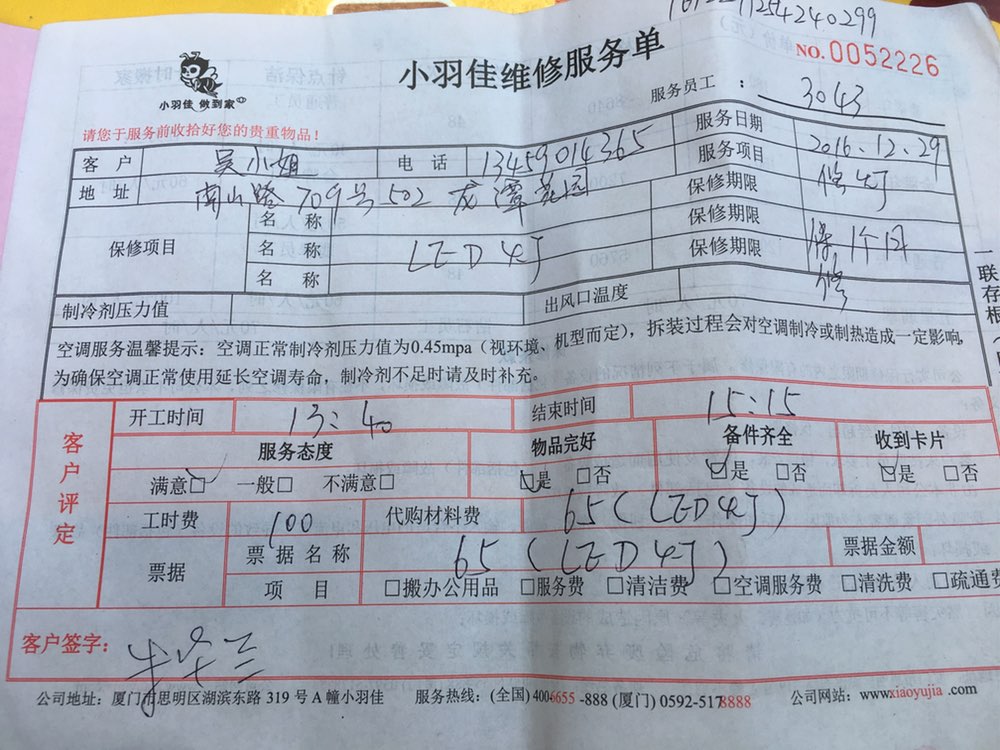 小羽佳维修服务单
NO.0052226
小羽佳 做到家
服务员工 : 3043
请您于服务前收拾好您的贵重物品!
客 户 吴小姐 电 话 13459014365 服务日期 2016.12.29
地 址 南山路709号502 龙潭花园 服务项目 修灯
保修项目 名 称 保修期限
名 称 LED灯 保修期限 保1个月
名 称 保修期限 修
制冷剂压力值 出风口温度
空调服务温馨提示：空调正常制冷剂压力值为0.45mpa（视环境、机型而定），拆装过程会对空调制冷或制热造成一定影响,
为确保空调正常使用延长空调寿命，制冷剂不足时请及时补充。
一联存根
客户评定
开工时间 13:40 结束时间 15:15
服务态度 物品完好 备件齐全 收到卡片
满意☑ 一般□ 不满意□ ☑是 □否 ☑是 □否 ☑是 □否
工时费 100 代购材料费 65(LED灯)
票据 票据名称 65(LED灯) 票据金额
项 目 □搬办公用品 □服务费 □清洁费 □空调服务费 □清洗费 □疏通费
客户签字:
公司地址：厦门市思明区湖滨东路 319 号 A 幢小羽佳 服务热线：(全国) 400-6655-888 (厦门) 0592-5178888 公司网站：www.xiaoyujia.com